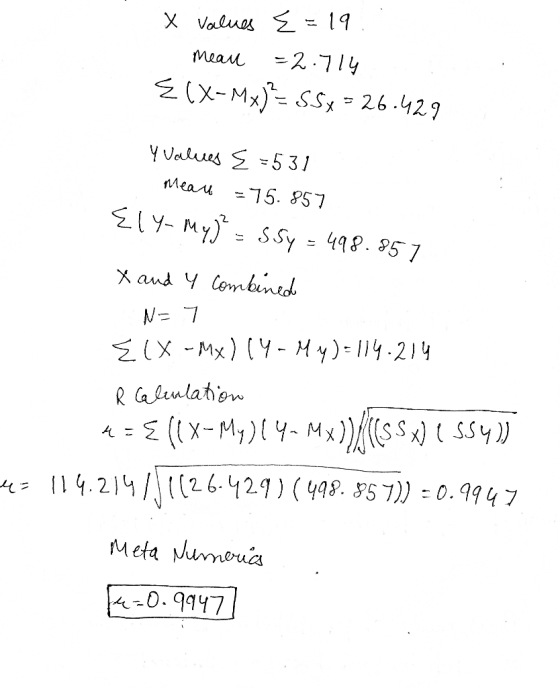 X values Σ = 19
Mean = 2.714
Σ(X-Mx)² = SSx = 26.429
Y Values Σ = 531
Mean = 75.857
Σ(Y-My)² = SSy = 498.857
X and Y Combined
N = 7
Σ(X-Mx)(Y-My) = 114.214
R Calculation
r = Σ((X-My)(Y-Mx))/√((SSx)(SSy))
r = 114.214/√((26.429)(498.857)) = 0.9947
Meta Numerics
r=0.9947